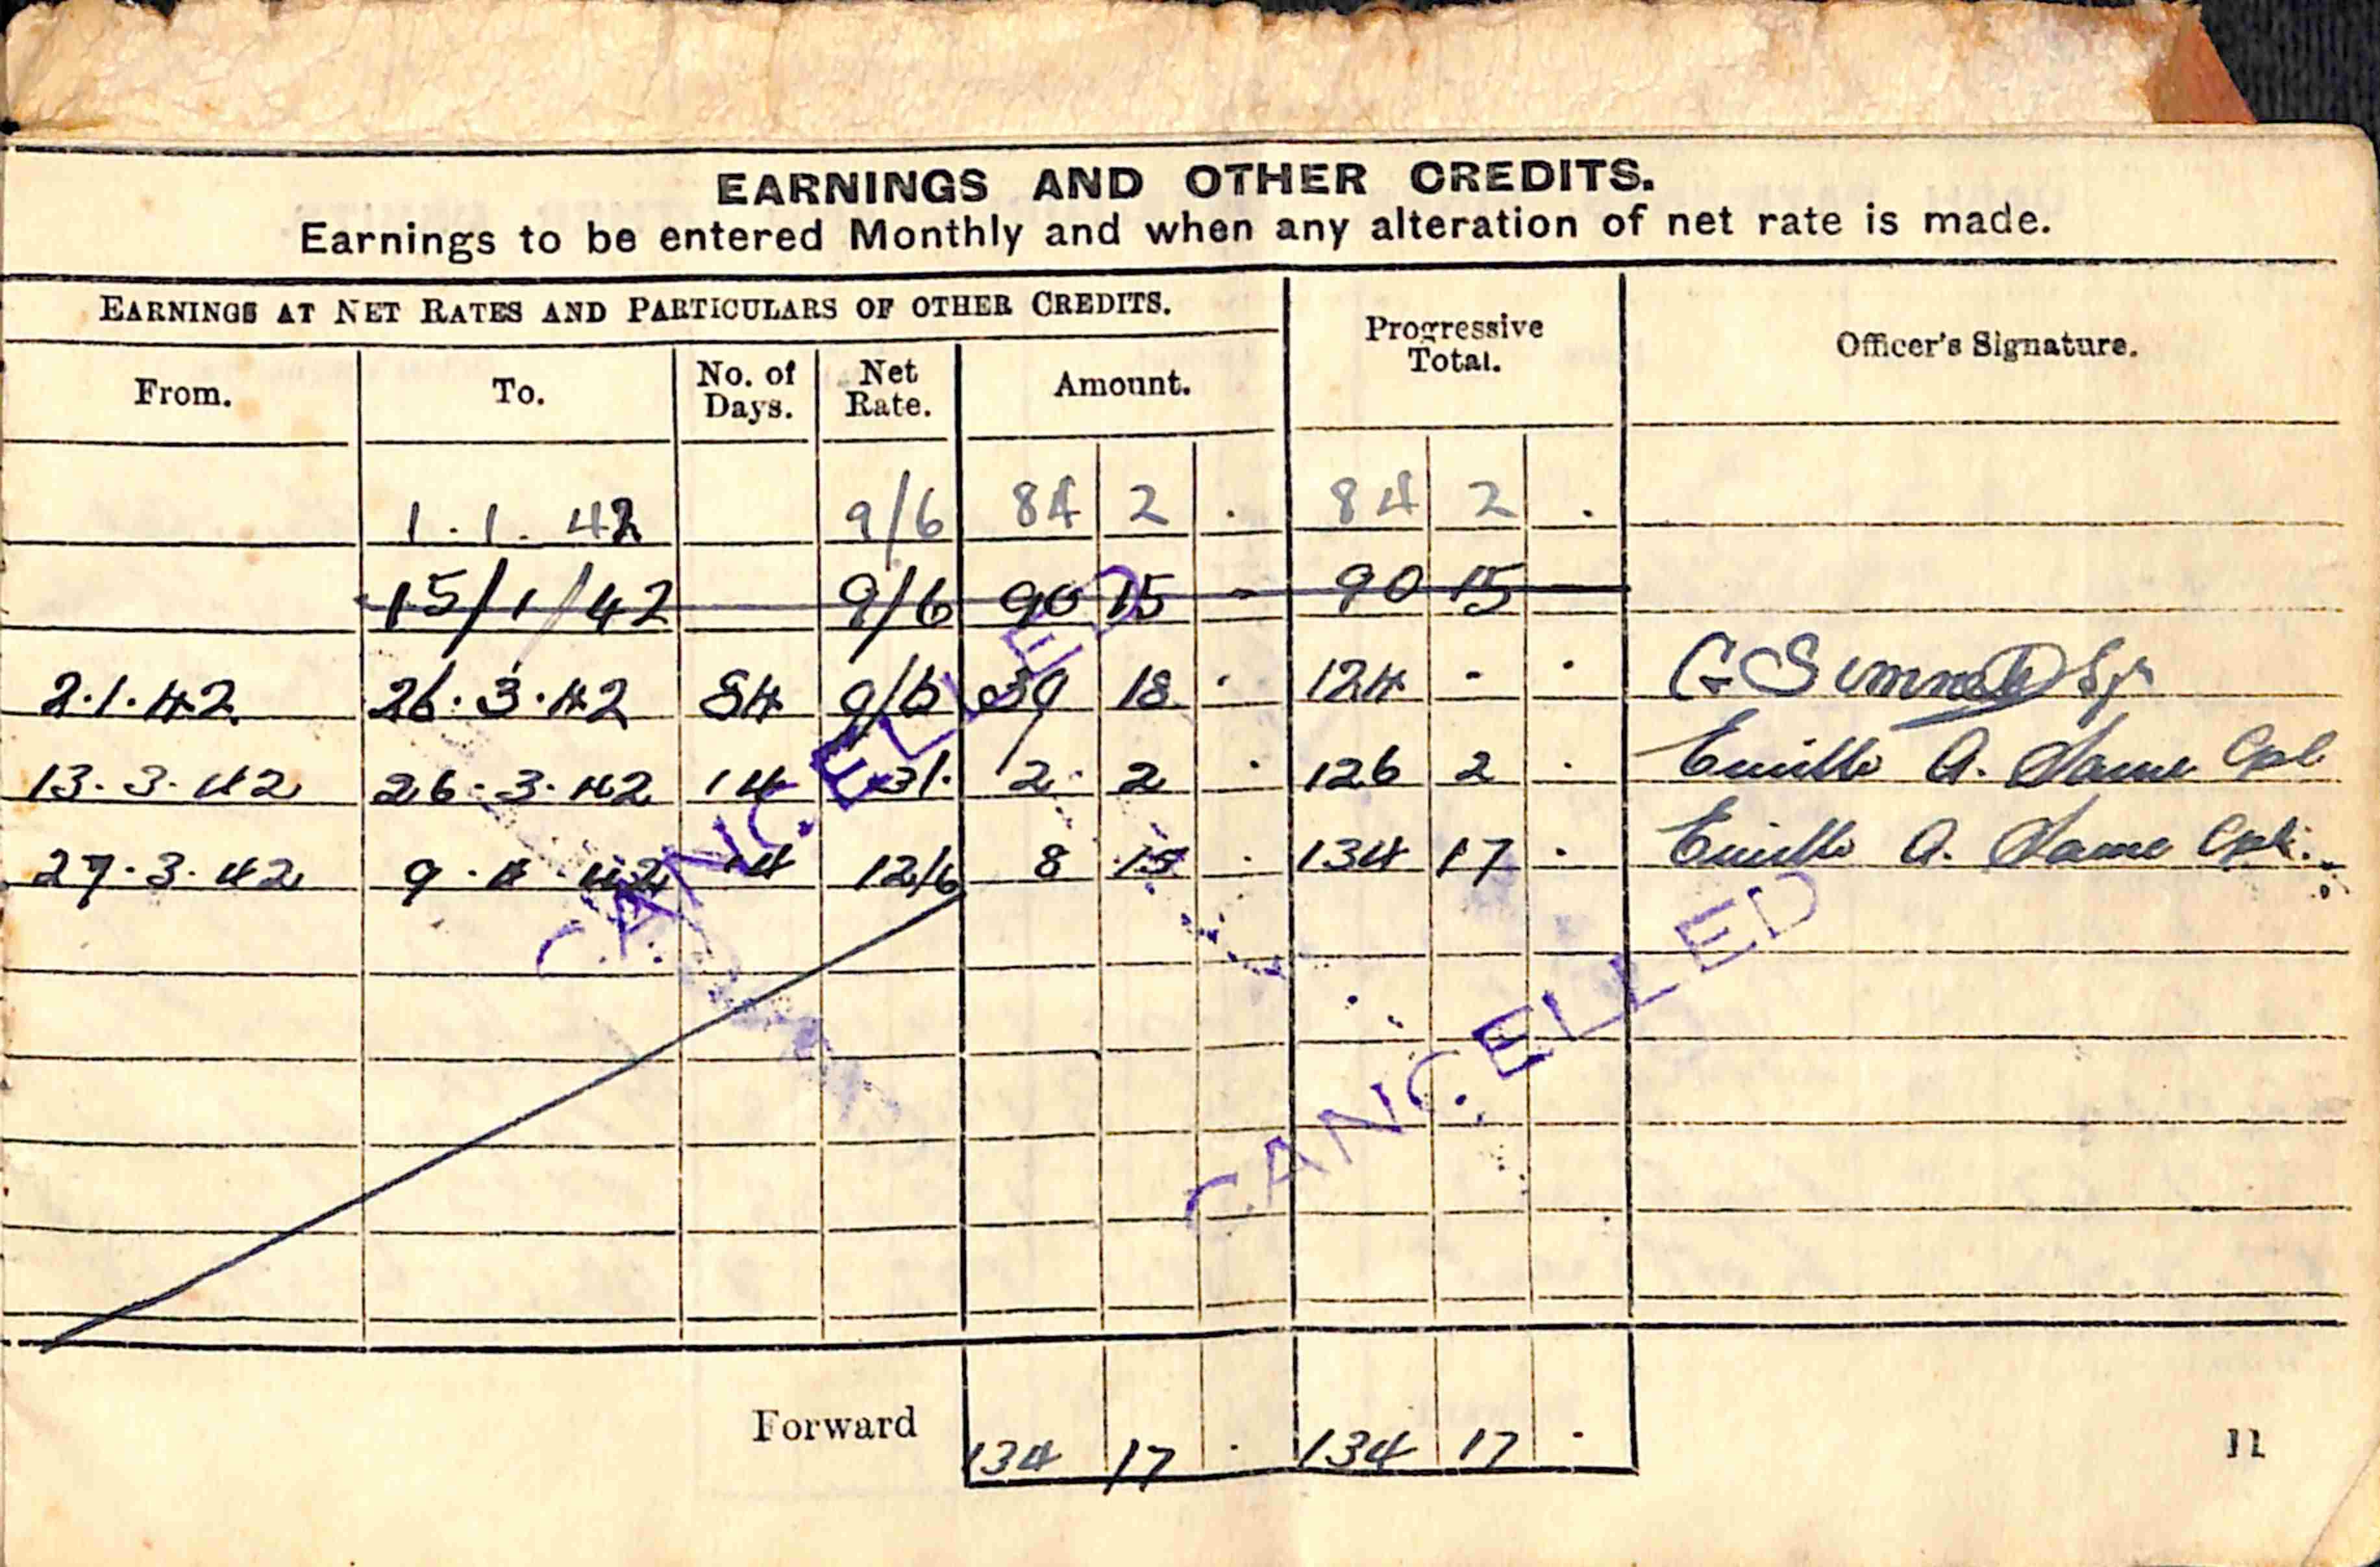 EARNINGS AND OTHER CREDITS.
Earnings to be entered Monthly and when any alteration of net rate is made.
EARNINGS AT NET RATES AND PARTICULARS OF OTHER CREDITS.
Progressive Total.
Officer's Signature.
From. To. No. of Days. Net Rate. Amount.
1.1.42 9/6 84 2 . 84 2 .
15/1/42 9/6 90 15 - 90 15 -
2.1.42 26.3.42 84 9/6 39 18 . 124 - .
13.3.42 26.3.42 14 3/. 2 2 . 126 2 . A. Cpl
27.3.42 9.4.42 14 12/6 8 15 . 134 17 . A. Cpl.
CANCELLED
CANCELLED
Forward 134 17 . 134 17 .
11